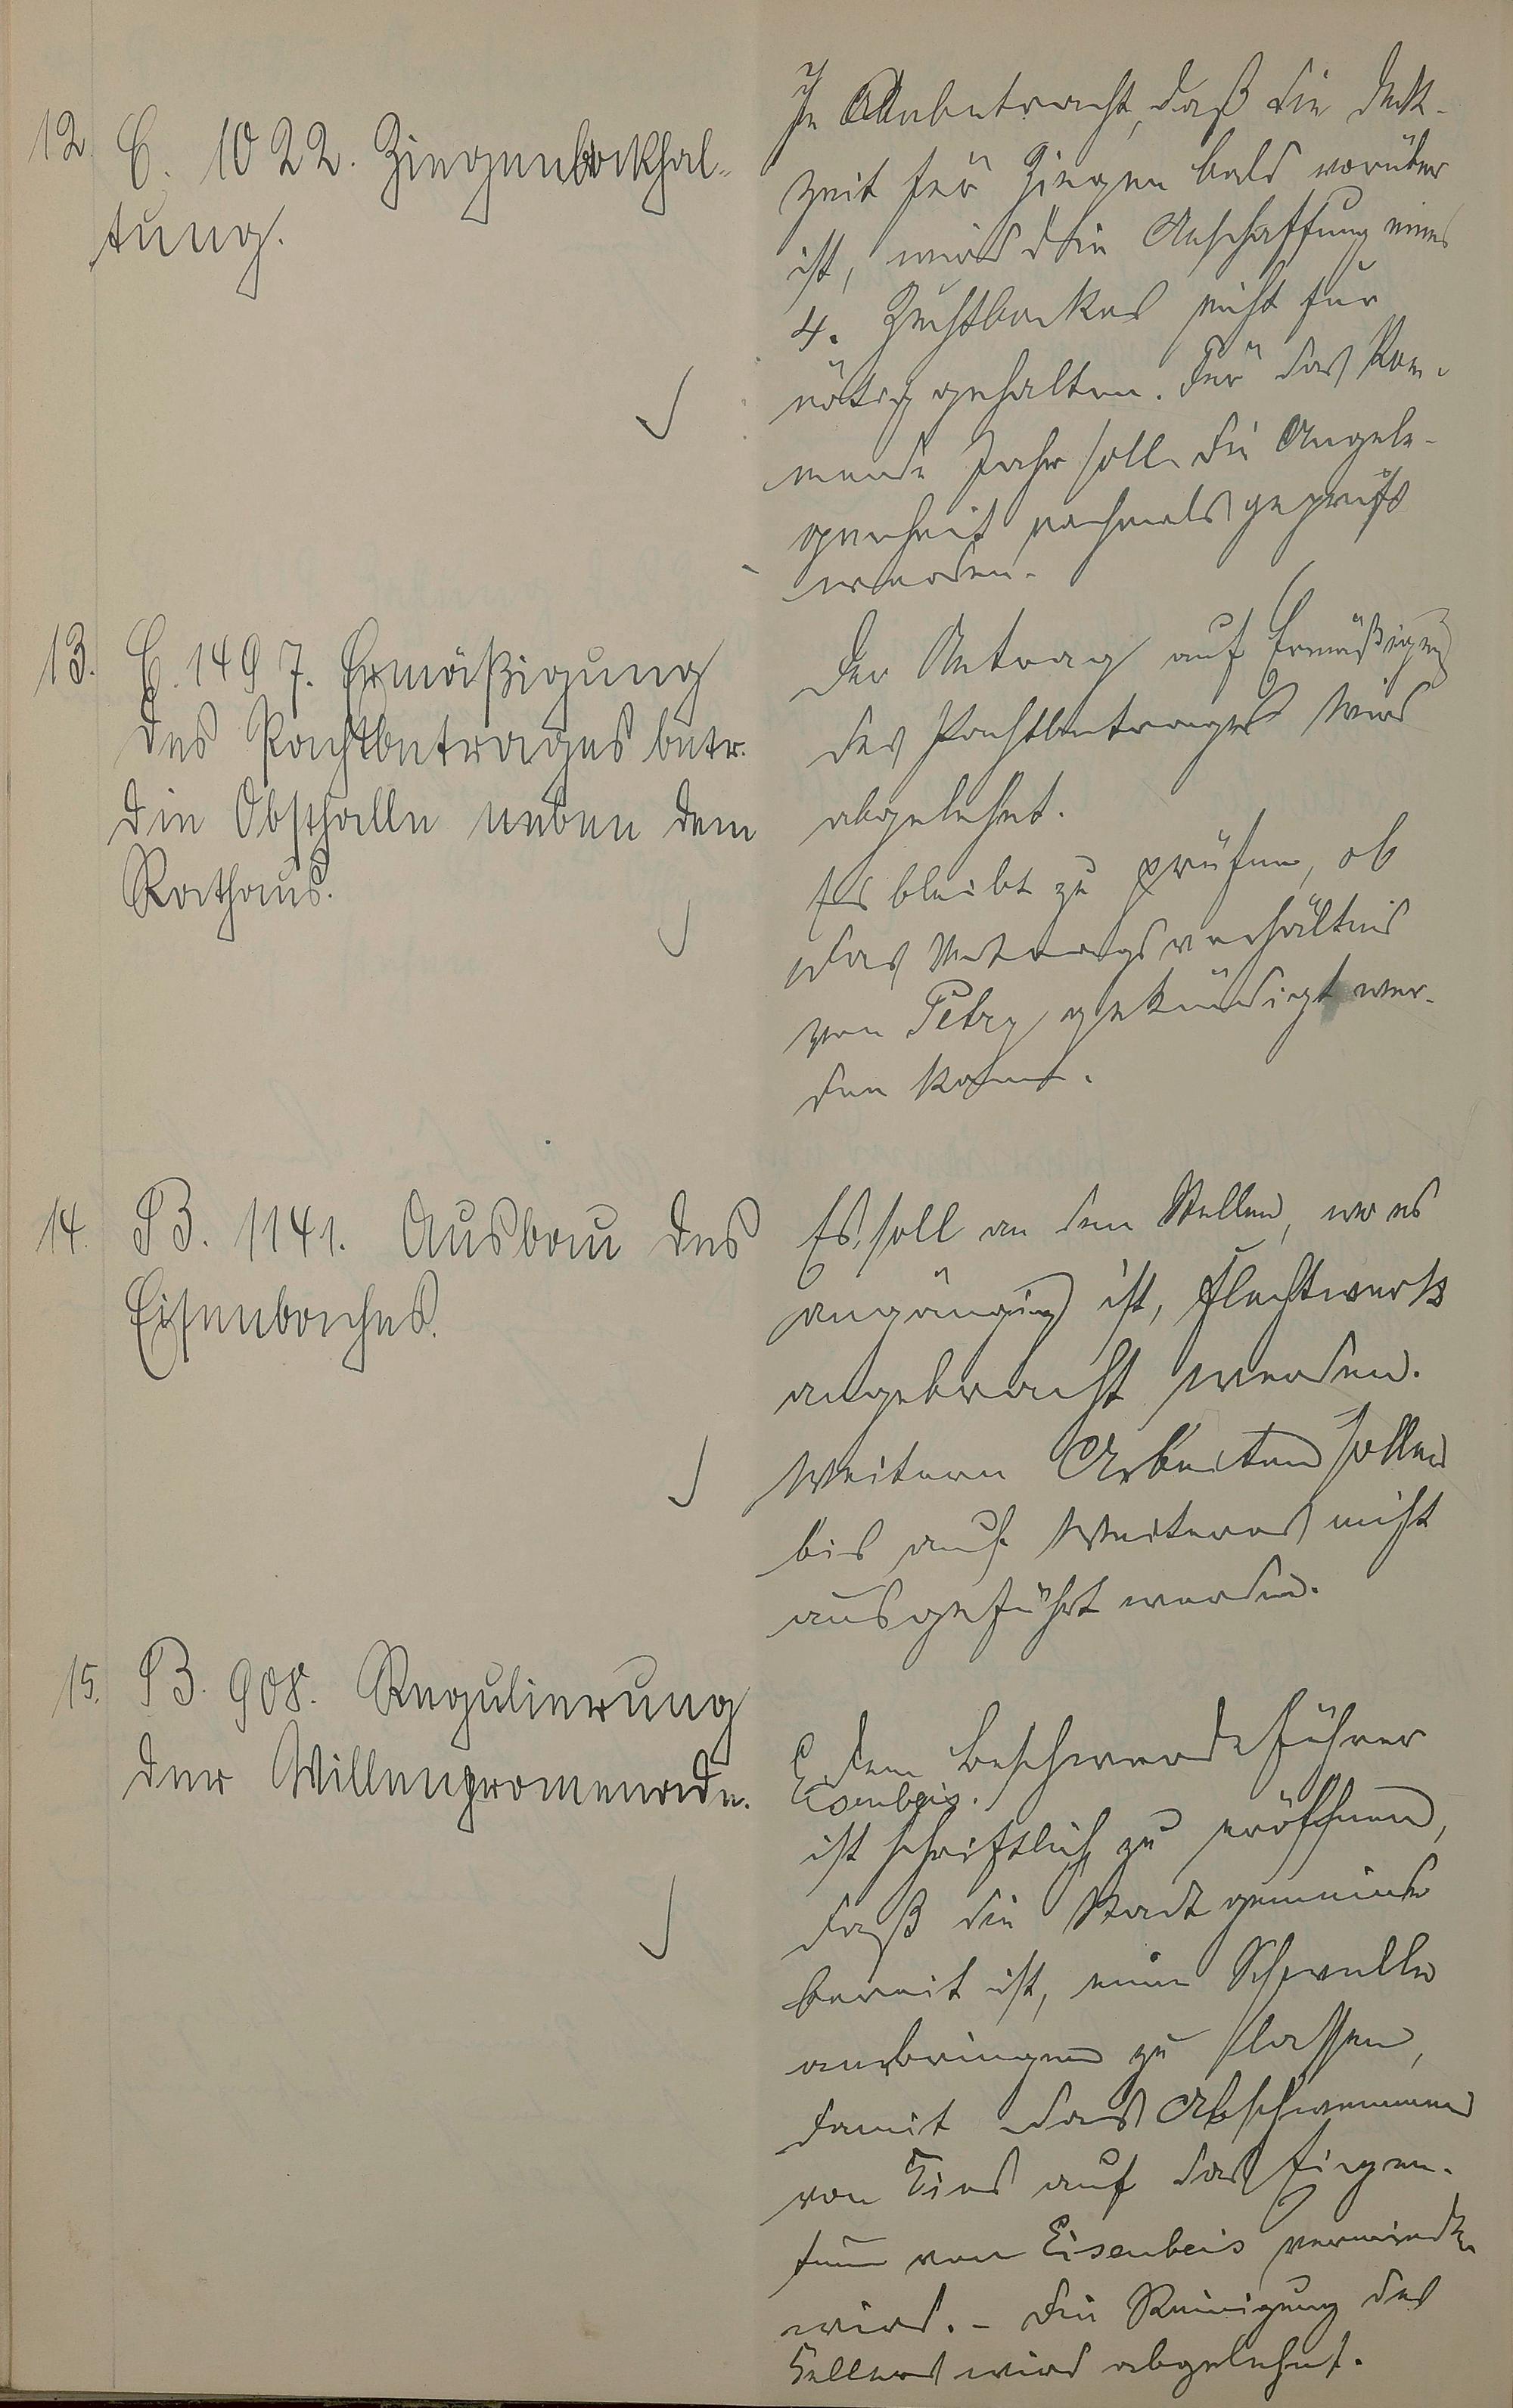 12. C. 1022. Ziegenbockhal-
tung.
In Anbetracht, daß die Deck-
zeit für Ziegen bald vorüber
ist, wird die Anschaffung eines
4. Zuchtbockes nicht für
nötig gehalten. Für das kom-
mende Jahr soll die Angele-
genheit nochmals geprüft
werden.
13. C. 1497. Ermäßigung
des Pachtbetrages betr.
die Obsthalle neben dem
Rathaus.
Der Antrag auf Ermäßigung
des Pachtbetrages wird
abgelehnt.
Es bleibt zu prüfen, ob
das Vertragsverhältnis
von Petry gekündigt wer-
den kann.
14. B. 1141. Ausbau des
Eisenbaches.
Es soll an den Stellen, wo es
angängig ist, Flechtwerk
angebracht werden.
Weitere Arbeiten sollen
bis auf Weiteres nicht
ausgeführt werden.
15. B. 908. Regulierung
der Villenpromenade.
Dem Beschwerdeführer
Eisenbeis
ist schriftlich zu eröffnen,
daß die Stadtgemeinde
bereit ist, eine Schwelle
anbringen zu lassen,
damit das Abschwemmen
von Kies auf das Eigen-
tum von Eisenbeis vermieden
wird. - Die Reinigung des
Kellers wird abgelehnt.